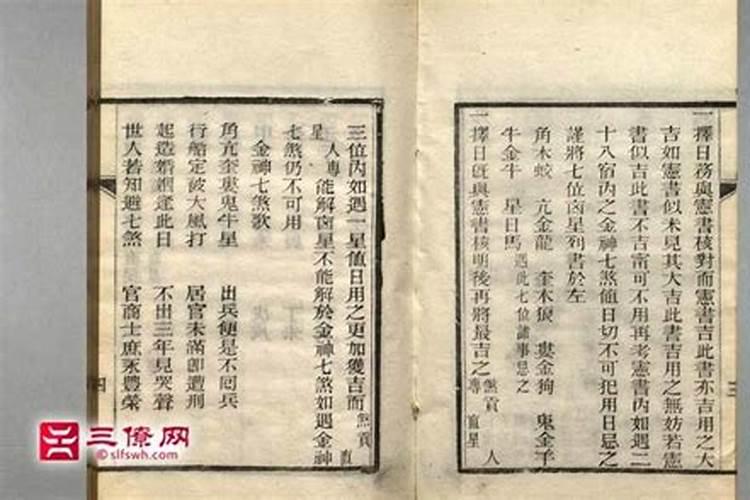 一擇日務與憲書核對而憲書吉此書亦吉用之大
吉如憲書似未見其大吉此書吉用之無妨若憲
書似吉此書不吉甯可不用再考憲書內如遇二
十八宿內之金神七煞值日切不可犯用日忌之
謹將七位凶星列書於左
角木蛟 亢金龍 奎木狼 婁金狗 鬼金羊
牛金牛 星日馬 遇此七位諸事忌之
一擇日旣與憲書核明後再將最吉之 煞貢 人專 直星
三
三位內如遇一星值日用之更加獲吉而 煞貢 直星
人專 能解凶星不能解於金神七煞如遇金神
七煞仍不可用
金神七煞歌
角亢奎婁鬼牛星 出兵便是不囘兵
行船定被大風打 居官未滿卽遭刑
起造婚姻逢此日 不出三年見哭聲
世人若知避七煞 官商士庶永豐榮
四
三僚网
©slfswh.com